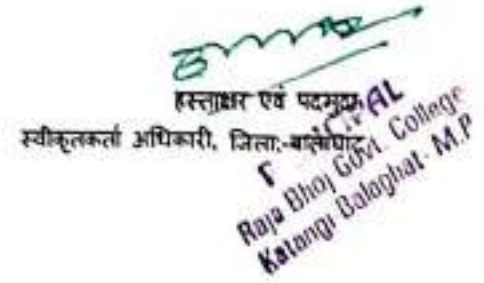 हस्ताक्षर एवं पदमुद्रा
स्वीकृतकर्ता अधिकारी, जिला:-बालाघाट
Raja Bhoj Govt. College
Katangi Balaghat- M.P